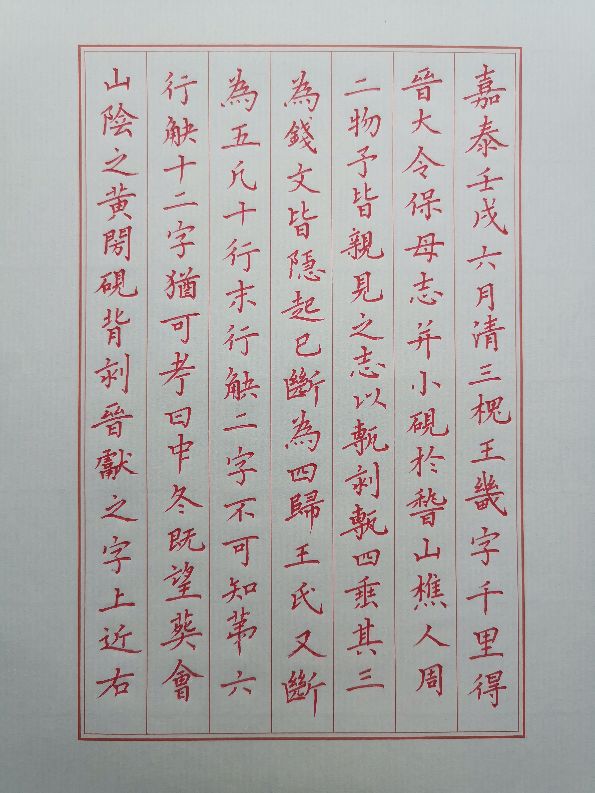 嘉泰壬戌六月清三槐王畿字千里得
晉大令保母志并小硯於稽山樵人周
二物予皆親見之志以甎刻甎四垂其三
為錢文皆隱起已斷為四歸王氏又斷
為五凡十行末行觖二字不可知第六
行觖十二字猶可考曰中冬既望葬會
山陰之黄閍硯背刻晉獻之字上近右